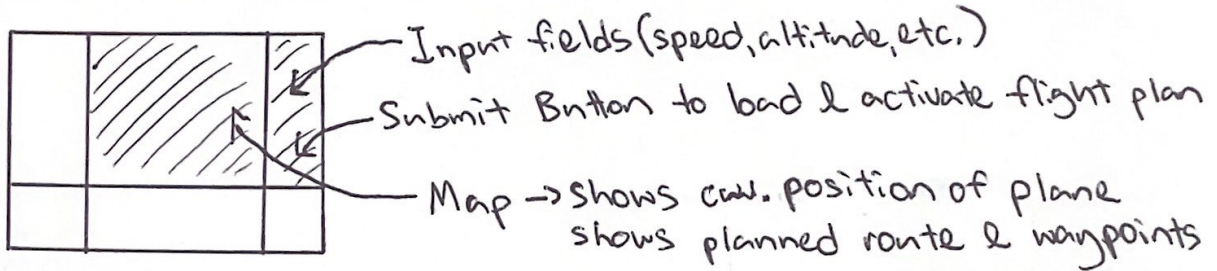 Input fields (speed, altitude, etc.)
Submit Button to load & activate flight plan
Map → shows curr. position of plane
shows planned route & waypoints